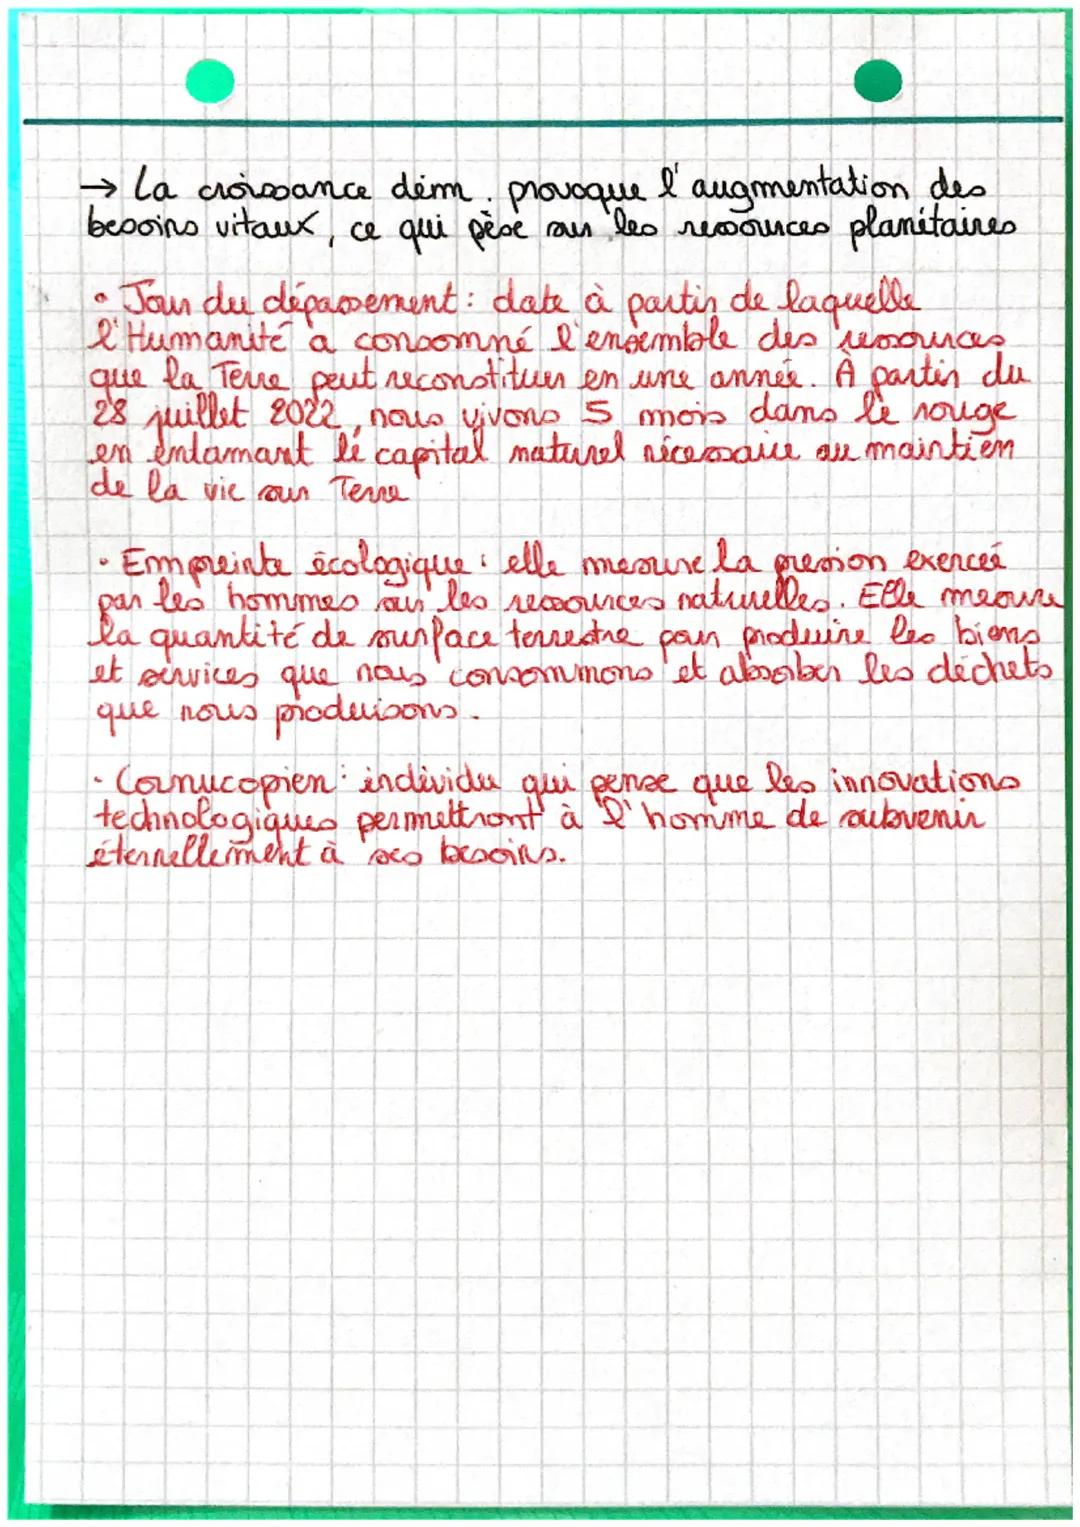 → La croissance dém. provoque l'augmentation des
besoins vitaux, ce qui pèse sur les ressources planétaires
• Jour du dépassement : date à partir de laquelle
l'Humanité a consommé l'ensemble des ressources
que la Terre peut reconstituer en une année. À partir du
28 juillet 2022, nous vivons 5 mois dans le rouge
en entamant le capital naturel nécessaire au maintien
de la vie sur Terre
• Empreinte écologique : elle mesure la pression exercée
par les hommes sur les ressources naturelles. Elle mesure
la quantité de surface terrestre pour produire les biens
et services que nous consommons et absorber les déchets
que nous produisons.
• Cornucopien : individu qui pense que les innovations
technologiques permettront à l'homme de subvenir
éternellement à ses besoins.